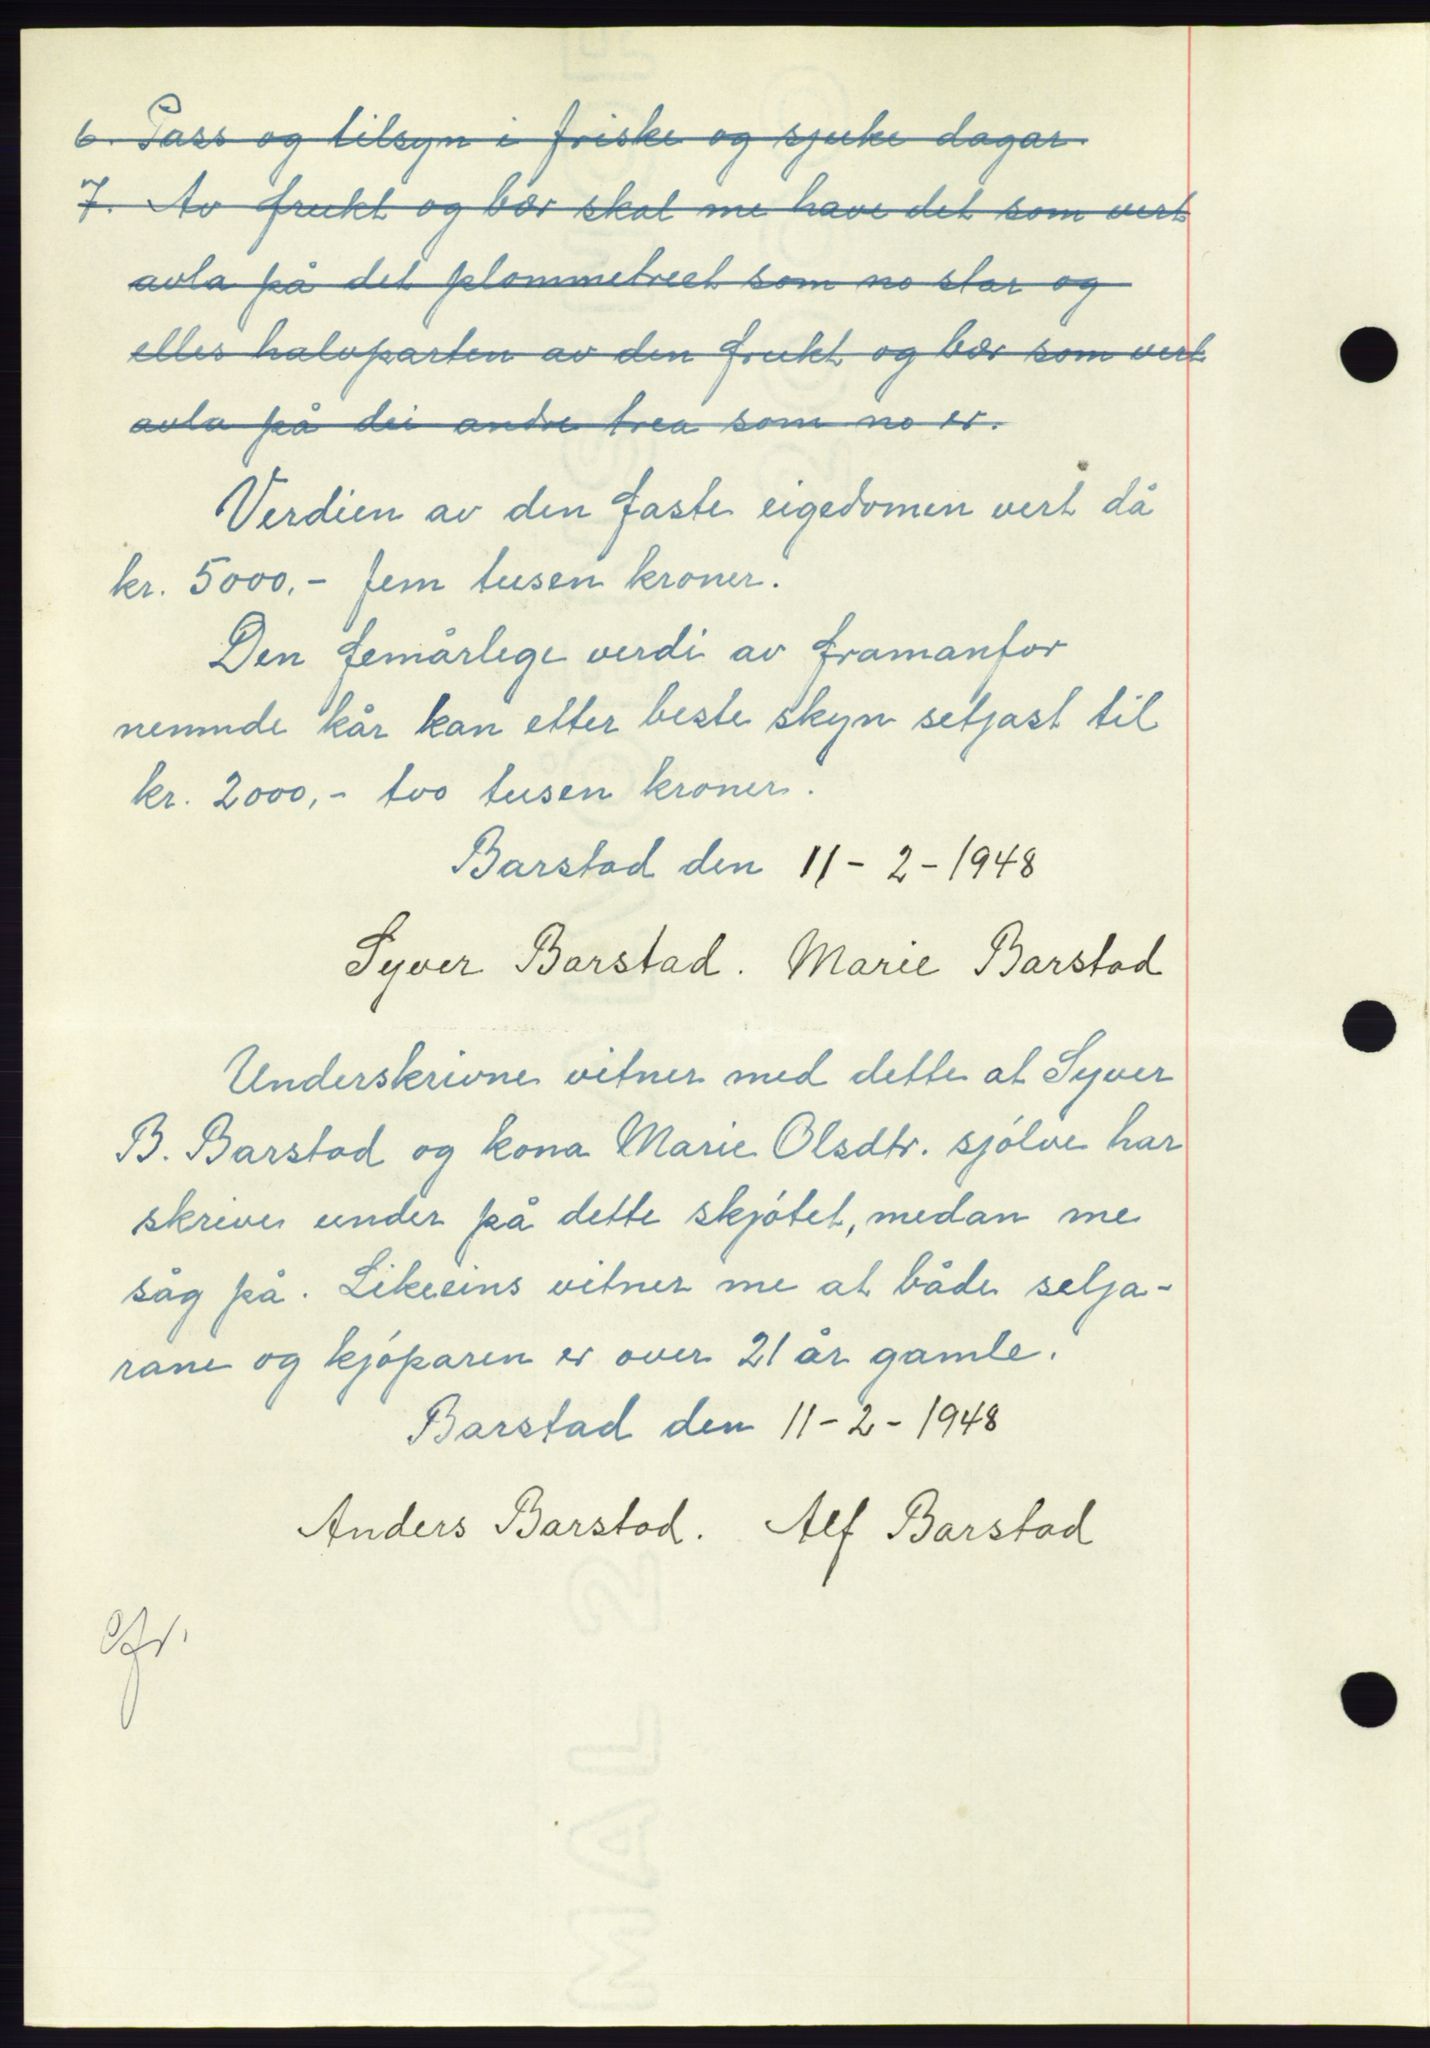 6. Pass og tilsyn i friske og sjuke dagar.
7. Av frukt og bær skal me have det som vert
avla på det plommetreet som no star og
elles halvparten av den frukt og bær som vert
avla på dei andre trea som no er.
Verdien av den faste eigedomen vert då
kr. 5000,- fem tusen kroner.
Den femårlege verdi av framanfor
nemnde kår kan etter beste skyn setjast til
kr. 2000,- two tusen kroner.
Barstad den 11-2-1948
Syver Barstad. Marie Barstad
Underskrivne vitner med dette at Syver
B. Barstad og kona Marie Olsdtr. sjølve har
skrive under på dette skjøtet, medan me
såg på. Likeeins vitner me at både selja-
rane og kjøparen er over 21 år gamle.
Barstad den 11-2-1948
Anders Barstad. Alf Barstad